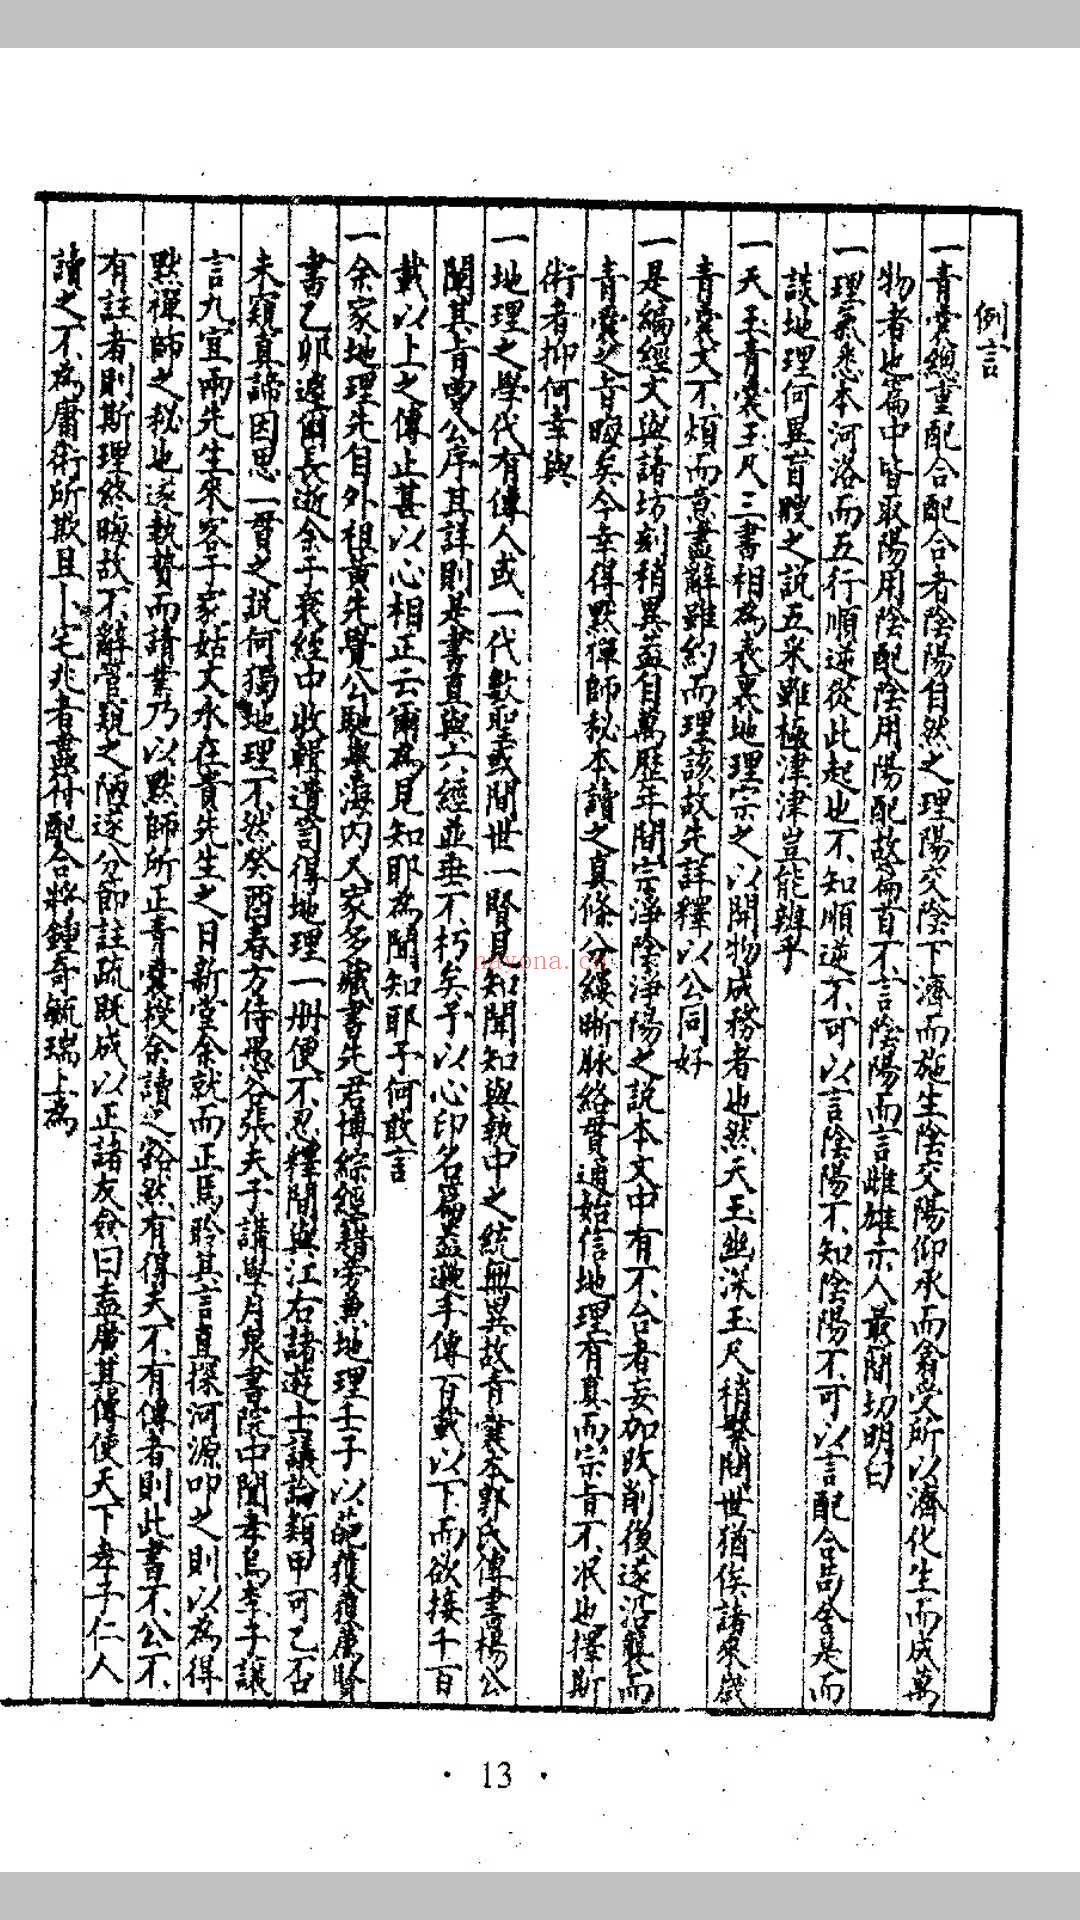 例言
一青囊總重配合配合者陰陽自然之理陽交陰下濟而施生陰交陽仰承而翕受所以濟化生而成萬
物者也篇中皆取陽用陰配陰用陽配故篇首不言陰陽而言雌雄示人最簡切明白
一理氣悉本河洛而五行順逆從此起也不知順逆不可以言陰陽不知陰陽不可以言配合苟舍是而
談地理何異盲瞍之說五采雖極津津豈能辨乎
一天玉青囊玉尺三書相為表裏地理宗之以開物成務者也然天玉幽深玉尺稍繁間世猶俟諸來歲
青囊文不煩而意盡辭雖約而理該故先詳釋以公同好
一是編經文與諸坊刻稍異蓋自萬歷年間宗淨陰淨陽之說本文中有不合者妄加改削後遂沿襲而
青囊之旨晦矣今幸得默禪師秘本讀之真條分縷晰脉絡貫通始信地理有真而宗旨不泯也擇斯
術者抑何幸與
一地理之學代有傳人或一代數聖或間世一賢見知聞知與執中之統無異故青囊本郭氏傳書楊公
闡其旨曾公序其詳則是書直與六經並垂不朽矣予以心印名篇蓋遡手傳百載以下而欲接千百
載以上之傳止甚以心相正云爾為見知耶為聞知耶予何敢言
一余家地理先自外祖黃先覺公馳輿海內又家多藏書先君博綜經籍旁兼地理壬子以範獲廣賢
書乙卯遽爾長逝余于衰絰中收輯遺笥得地理一冊便不忍釋間與江右諸遊士議論類甲可乙否
未窺真諦因思一貫之說何獨地理不然癸酉春方侍愚谷張夫子講學月泉書院中聞孝烏李子議
言九宜兩先生來客于家姑丈永在貴先生之日新堂余就而正焉聆其言直探河源叩之則以為得
默禪師之秘也遂執贄而請業乃以默師所正青囊授余讀之豁然有得夫不有傳者則此書不公不
有註者則斯理終晦故不辭管窺之陋遂分節註疏既成以正諸友僉曰盍廣其傳使天下孝子仁人
讀之不為庸術所欺且卜宅兆者盡符配合將鍾奇毓瑞上為
nayona.cn
· 13 ·